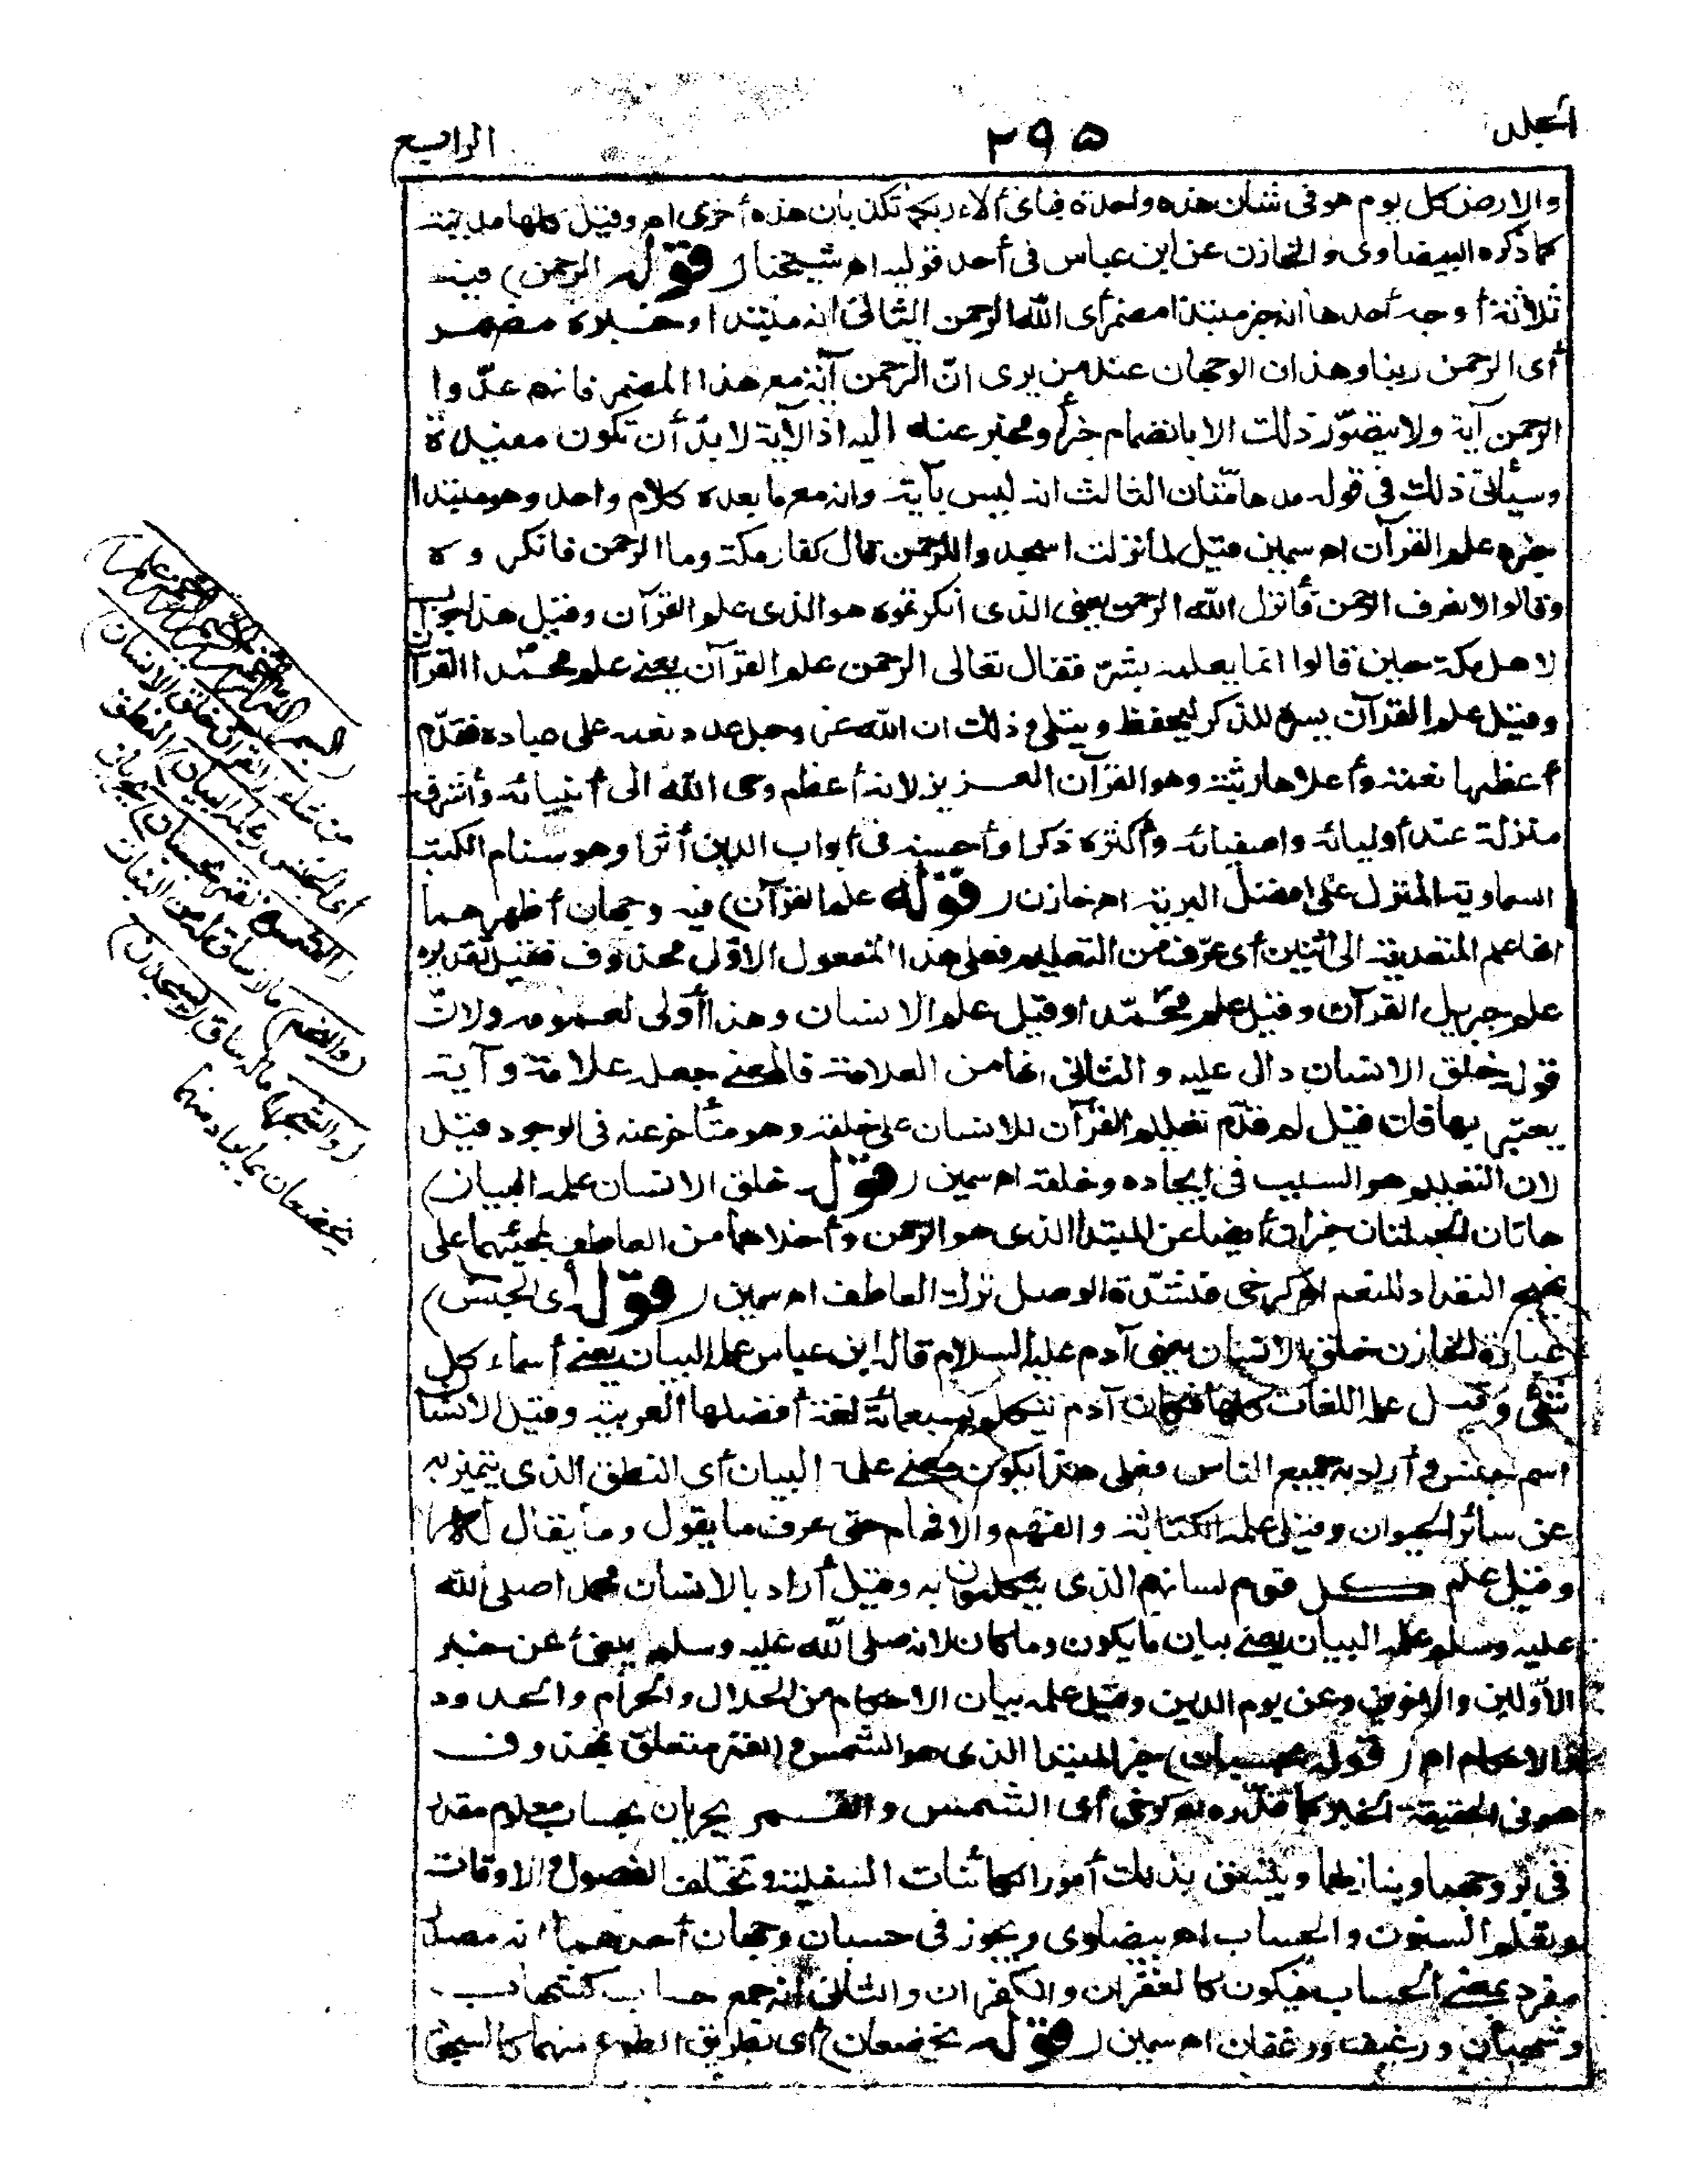 المجلد
٢٩٥
الرابع
والارض كل يوم هو فى شان هذه واحدة فباى ألاء ربكما تكذبان هذه أخرى اه وقيل كلها مدنية
كما ذكره البيضاوى والخازن عن ابن عباس فى أحد قوليه اه شيخنا ( قوله الرحمن) فيه
ثلاثة أوجه أحدها انه خبر مبتدا مضمر أى الله الرحمن الثانى انه مبتدا وخبره مضمر
أى الرحمن ربنا وهذان الوجهان عند من يرى انّ الرحمن آية مع هذا المضمر فانهم عدّوا
الرحمن آية ولا يتصوّر ذلك الا بانضمام خبر أو مخبر عنه اليه اذ الآية لا بدّ أن تكون مفيدة
وسيأتى ذلك فى قوله مدهامّتان الثالث انه ليس بآية وانه مع ما بعده كلام واحد وهو مبتدا
خبره علم القرآن اه سمين قيل لما نزلت اسجدوا للرحمن قال كفار مكة وما الرحمن فانكروه
وقالوا لا نعرف الرحمن فأنزل الله الرحمن يعنى الذى أنكرتموه هو الذى علم القرآن وقيل هذا جواب
لاهل مكة حين قالوا انما يعلمه بشر فقال تعالى الرحمن علم القرآن يعنى علم محمدا القرآن
وقيل علم القرآن يسره للذكر ليحفظ ويتلى وذلك ان الله عز وجل عدد نعمه على عباده فقدّم
أعظمها نعمة وأعلاها رتبة وهو القرآن العزيز لانه أعظم وحى الله الى أنبيائه وأشرفه
منزلة عند أوليائه واصفيائه وأكثره ذكرا وأحسنه فى أبواب الدين أثرا وهو سنام الكتب
السماوية المنزل على افضل البرية اه خازن ( قوله علم القرآن) فيه وجهان أظهرهما
انها علم المتعدية الى اثنين أى عرّف من التعليم فعلى هذا المفعول الاوّل محذوف فقيل تقديره
علم جبريل القرآن وقيل علم محمّدا وقيل علم الانسان وهذا أولى لعمومه ولانّ
قوله خلق الانسان دال عليه والثانى انها من العلامة فالمعنى جعله علامة وآية
يعتبر بها فان قيل لم قدّم تعليم القرآن للانسان على خلقه وهو متأخر عنه فى الوجود قيل
لان التعليم هو السبب فى ايجاده وخلقه اه سمين ( قوله خلق الانسان علمه البيان)
هاتان الجملتان خبران أيضا عن المبتدا الذى هو الرحمن وأخلاهما من العاطف لمجيئهما على
نهج التعداد للنعم اه كرخى فلشدّة الوصل ترك العاطف اه سمين ( قوله أى الجنس)
عبارة الخازن خلق الانسان يعنى آدم عليه السلام قاله ابن عباس علمه البيان يعنى أسماء كل
شئ وقيل علمه اللغات كلها فكان آدم يتكلم بسبعمائة لغة أفضلها العربية وقيل الانسان
اسم جنس وأراد به جميع الناس فعلى هذا يكون معنى علمه البيان أى النطق الذى يتميز به
عن سائر الحيوان وقيل علمه الكتابة والفهم والافهام حتى عرف ما يقول وما يقال له
وقيل علم كل قوم لسانهم الذى يتكلمون به وقيل أراد بالانسان محمدا صلى الله
عليه وسلم علمه البيان يعنى بيان ما يكون وما كان لانه صلى الله عليه وسلم ينبئ عن خبر
الأوّلين والآخرين وعن يوم الدين وقيل علمه بيان الاحكام من الحلال والحرام والحدود
والاحكام اه ( قوله بحسبان) خبر المبتدا الذى هو الشمس والقمر متعلق بمحذوف
هو فى الحقيقة الخبر كما قدّره الكرخى أى الشمس والقمر يجريان بحساب معلوم مقدر
فى بروجهما ومنازلهما ويتسق بذلك أمور الكائنات السفلية وتختلف الفصول والاوقات
وتعلم السنون والحساب اه بيضاوى ويجوز فى حسبان وجهان أحدهما انه مصدر
مفرد بمعنى الحساب فيكون كالغفران والكفران والثانى أنه جمع حساب كشهاب
وشهبان ورغيف ورغفان اه سمين ( قوله يخضعان) أى بطريق الطوع منهما كالسجود
بسم الله الرحمن الرحيم الرحمن علم)
من شاء (القرآن خلق الانسان)
أى الجنس (علمه البيان) النطق
(الشمس والقمر بحسبان) يجريان
(والنجم) مالا ساق له من النبات
(والشجر) ماله ساق (يسجدان)
يخضعان بما يراد منهما